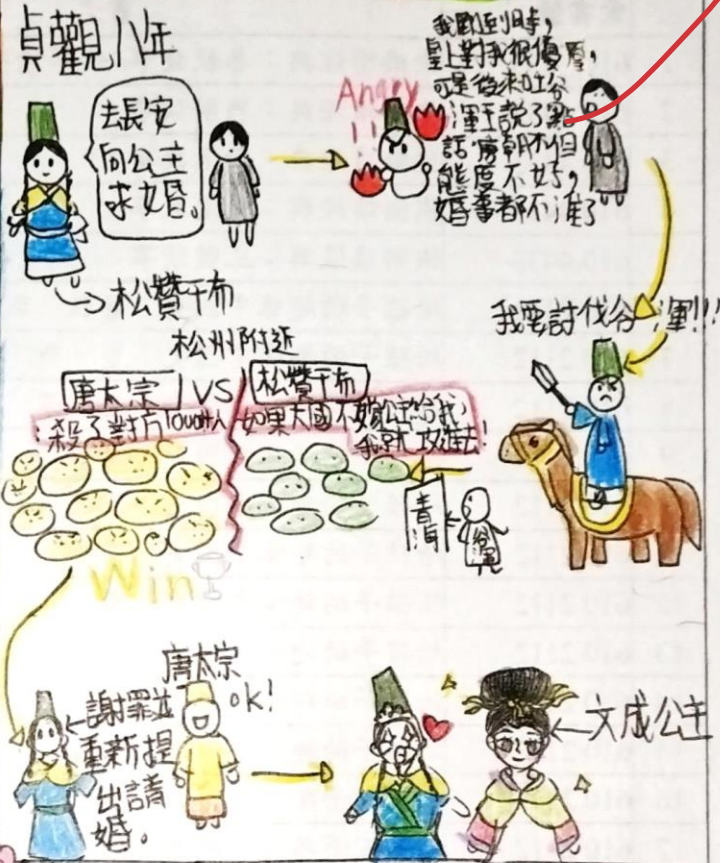 貞觀八年
去長安
向公主
求婚。
松贊干布
Angry
!!
我剛到時，
皇上對我很優厚，
可是後來吐谷
渾王說了點
話，唐朝不但
態度不好，
婚事都不准了
我要討伐谷渾!!!
松州附近
唐太宗 VS 松贊干布
：殺了對方1000叶人
如果大國不嫁公主給我，
我就攻進去!
青海
谷渾
Win
謝罪並
重新提
出請
婚。
唐太宗
OK!
文成公主